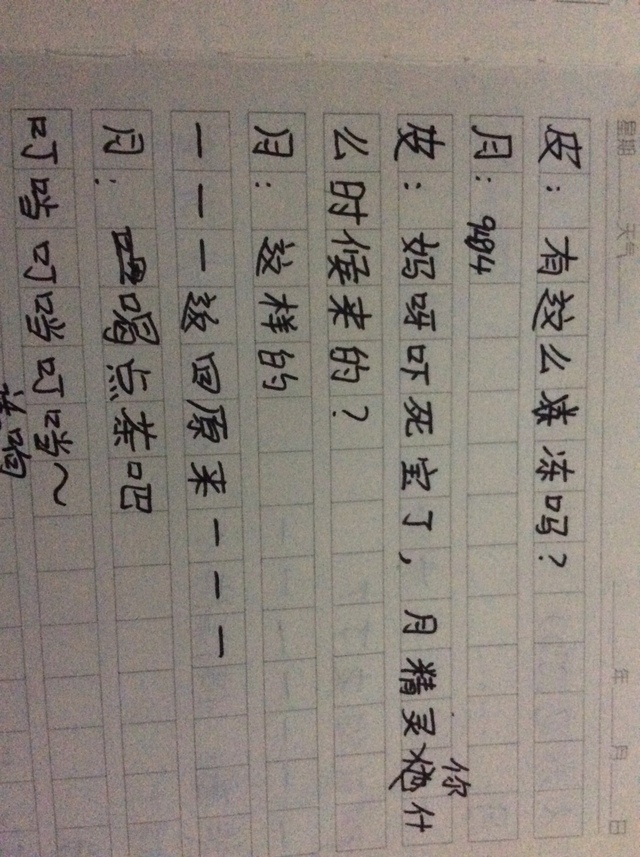 星期 天气 年 月 日
皮：有这么冻吗？
月：9494
皮：妈呀吓死宝了，月精灵你什
么时候来的？
月：这样的
———这回原来———
月：喝点茶吧
叮当叮当叮当～